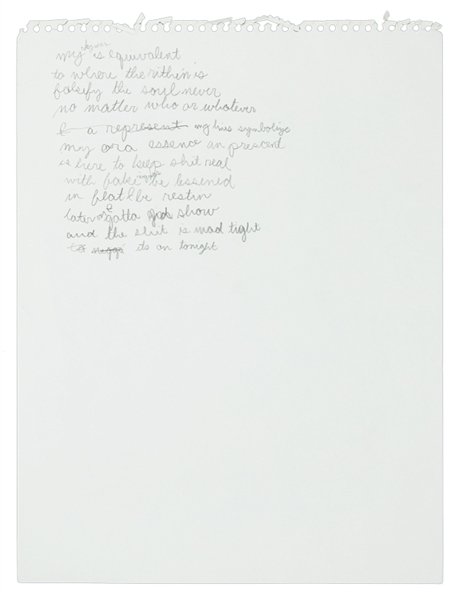 my is equivalent
to where the rithin is
falsify the soul never
no matter who or whatever
a represent my lines symbolize
my ora essence an present
is here to keep shit real
with fake be lessened
in beat be restin
later gotta show
and the shit is mad tight
its on tonight